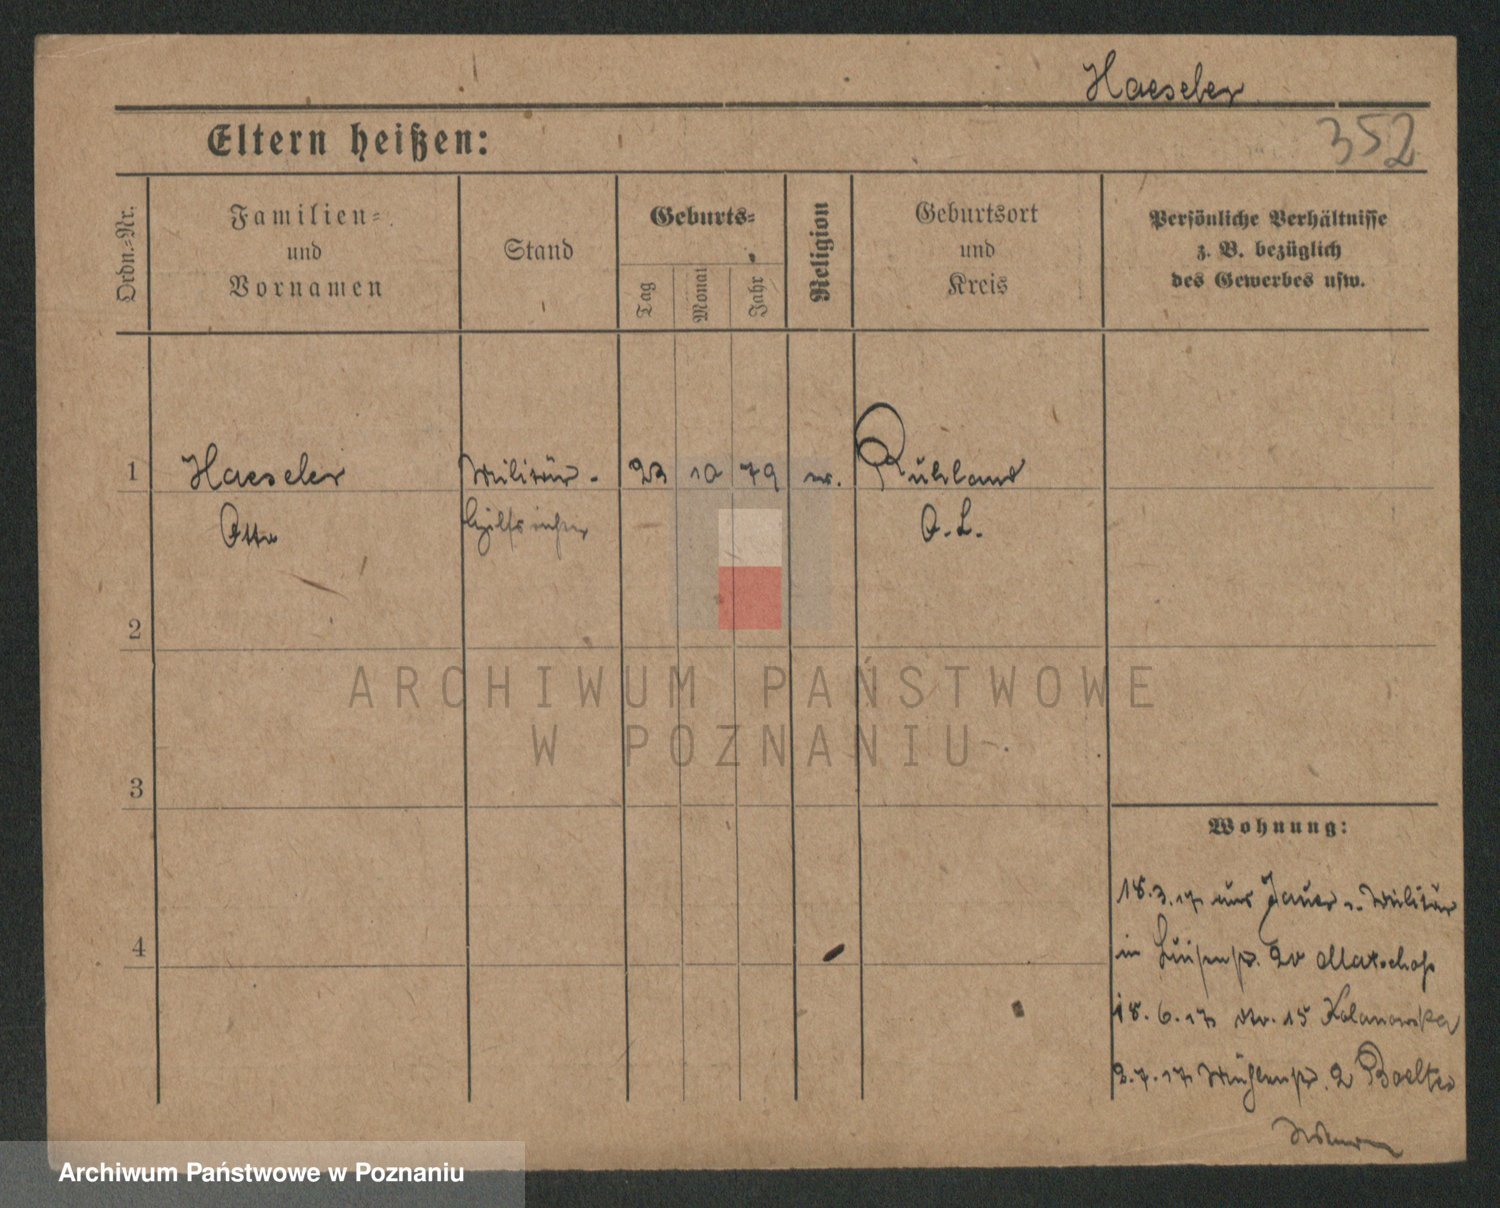 Haeseler
Eltern heißen:
352
Ordn.-Nr.
Familien-
und
Vornamen
Stand
Geburts-
Tag
Monat
Jahr
Religion
Geburtsort
und
Kreis
Persönliche Verhältnisse
z. B. bezüglich
des Gewerbes usw.
1 Haeseler Militär- 23 10 79 ev. Ruhland
Otto O. L.
2
3
4
ARCHIWUM PAŃSTWOWE
W POZNANIU
Wohnung:
18.3.17 aus Jauer v. Militär
in Luisenstr. 20 Matschoß
18.6.17 15 Kolanowska
2.7.17 Mühlenstr. 2
Archiwum Państwowe w Poznaniu